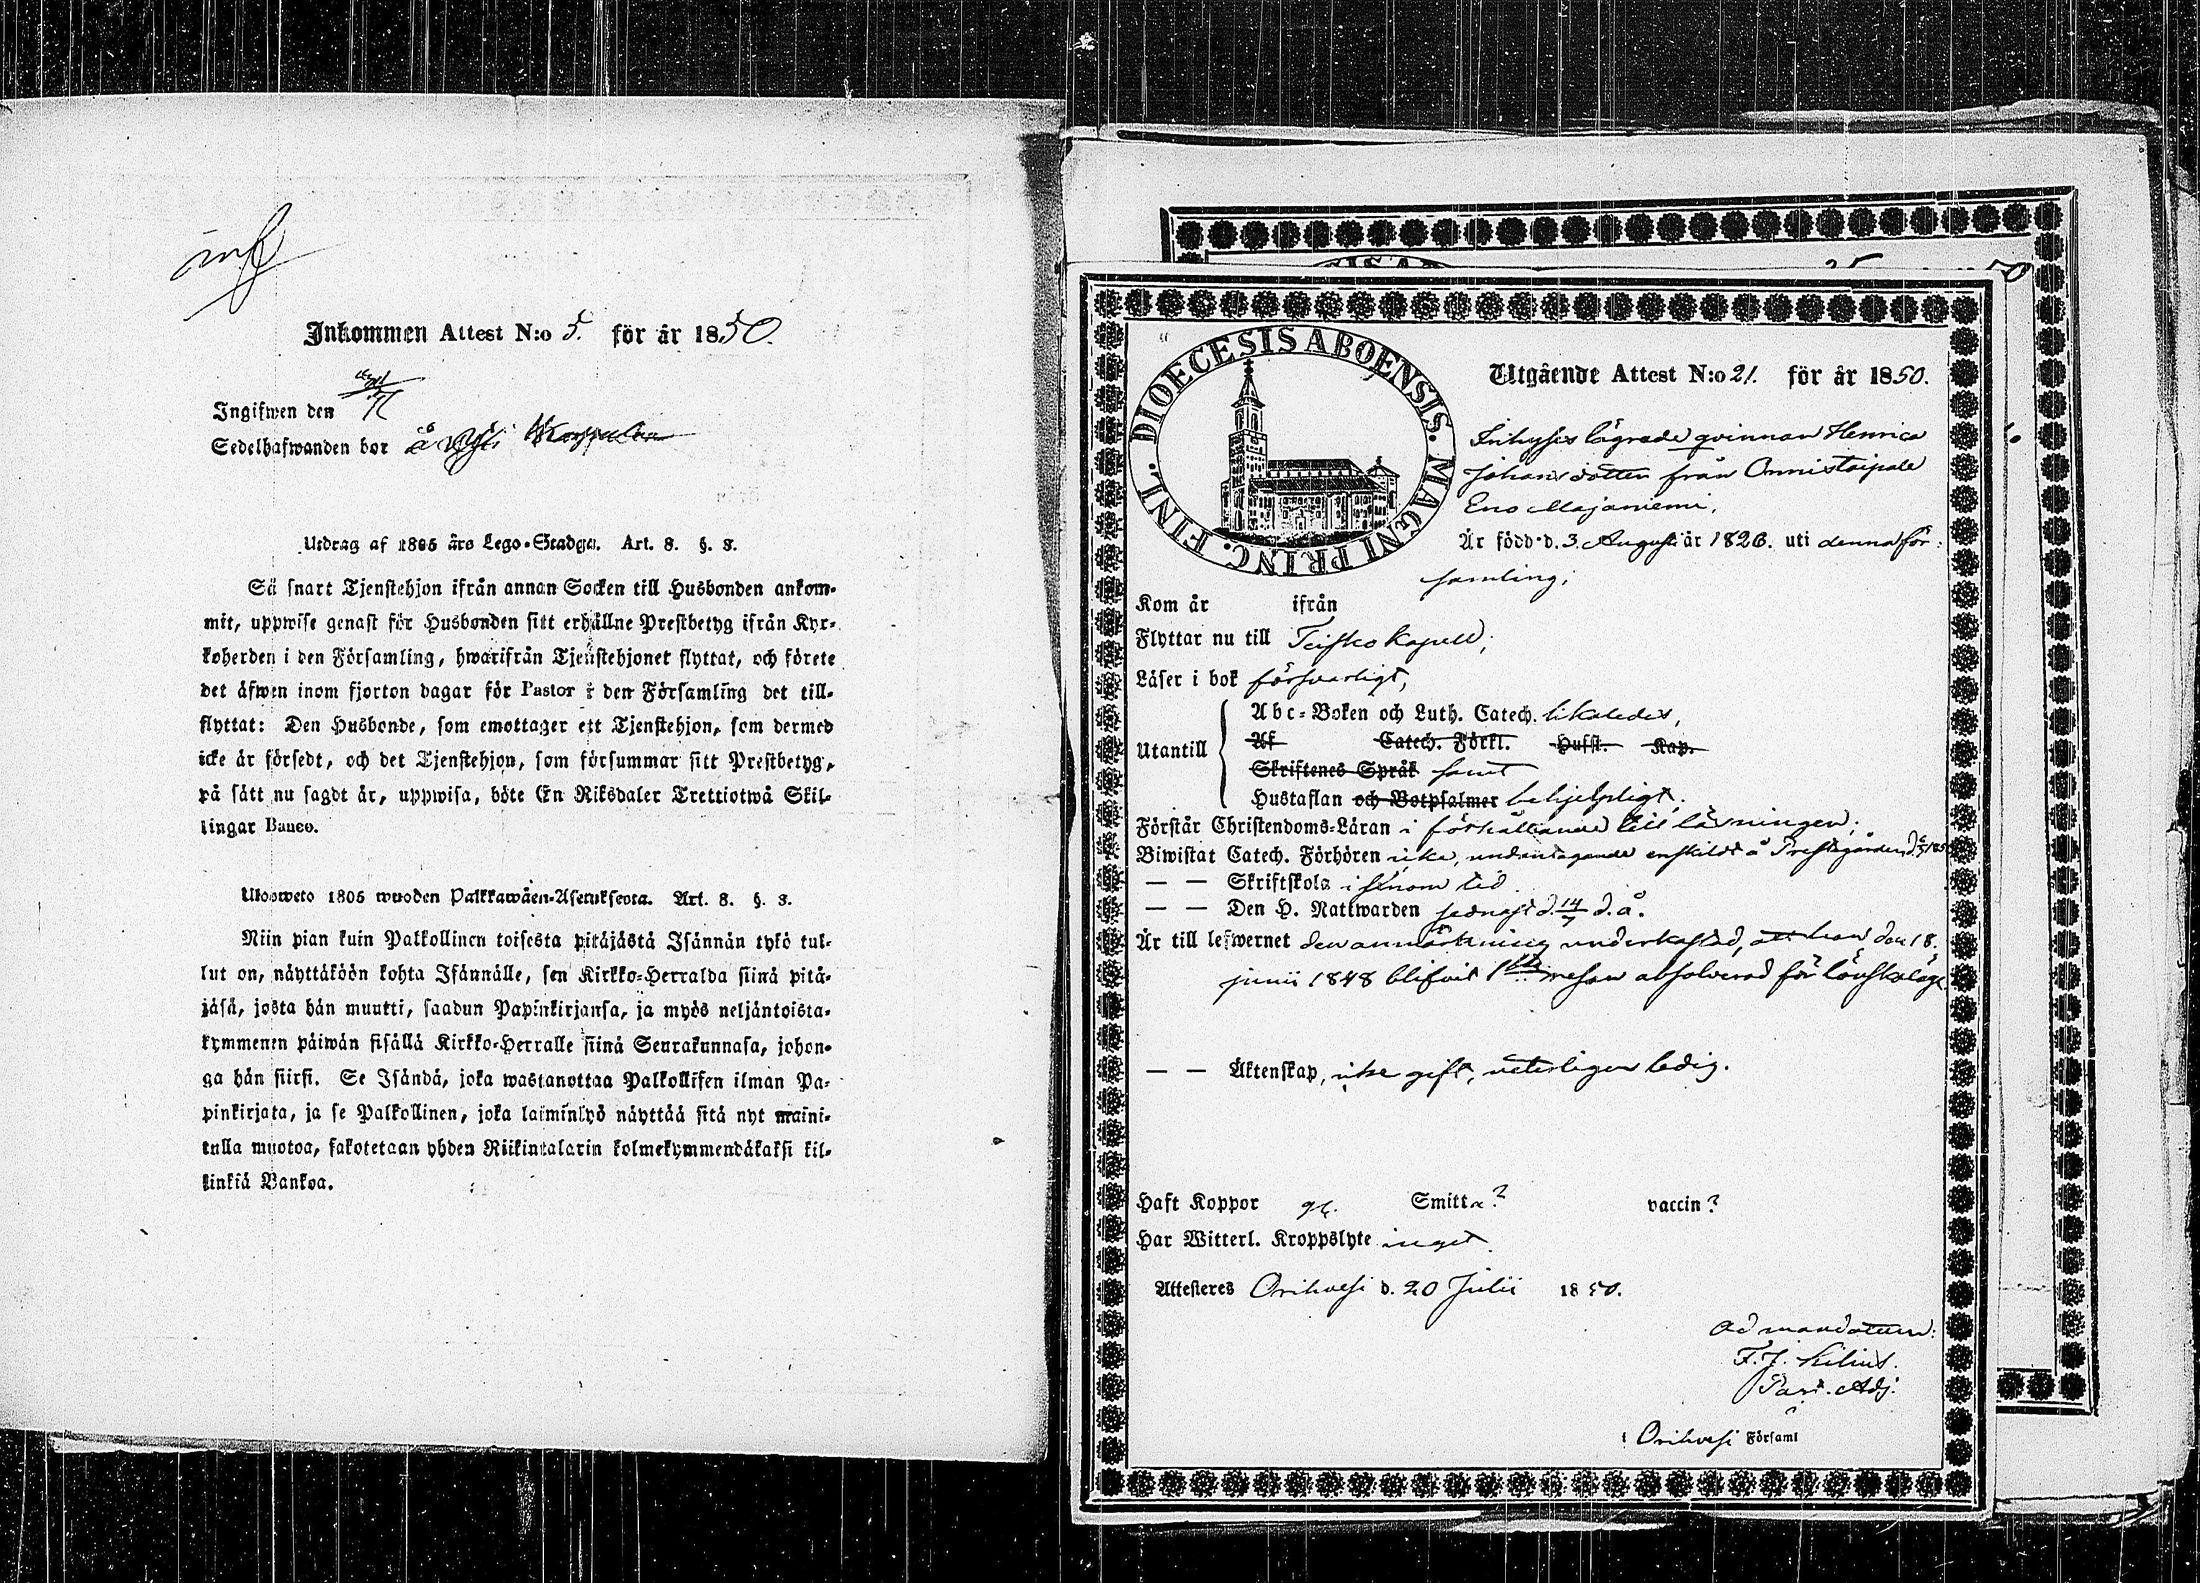 Inkommen Attest N:o 5. för år 1850.
Ingifwen den
Sedelhafwanden bor å
Utdrag af 1805 års Lego-Stadga. Art. 8. §. 3.
Så snart Tjenstehjon ifrån annan Socken till Husbonden ankom-
mit, uppwise genast för Husbonden sitt erhållne Prestbetyg ifrån Kyr-
koherden i den Församling, hwarifrån Tjenstehjonet flyttat, och förete
det äfwen inom fjorton dagar för Pastor i den Församling det till-
flyttat: Den Husbonde, som emottager ett Tjenstehjon, som dermed
icke är försedt, och det Tjenstehjon, som försummar sitt Prestbetyg,
på sätt nu sagdt är, uppwisa, böte En Riksdaler Trettiotwå Skil-
lingar Banco.
Ulosweto 1805 wuoden Palkkawäen-Asetuksesta. Art. 8. §. 3.
Niin pian kuin Palkollinen toisesta pitäjästä Isännän tykö tul-
lut on, näyttäköön kohta Isännälle, sen Kirkko-Herralda siinä pitä-
jäsä, josta hän muutti, saadun Papinkirjansa, ja myös neljäntoista-
kymmenen päiwän sisällä Kirkko-Herralle siinä Seurakunnasa, johon-
ga hän siirsi. Se Isändä, joka wastanottaa Palkollisen ilman Pa-
pinkirjata, ja se Palkollinen, joka laiminlyö näyttää sitä nyt maini-
tulla muotoa, sakotetaan yhden Riikintalarin kolmekymmendäkaksi kil-
linkiä Bankoa.
DIOECESIS ABOENSIS. MAGNI PRINC. FINL.
Utgående Attest N:o 21. för år 1850.
lägrade qvinnan Henrica
Johansdotter från Onnistaipale
Eno Majaniemi,
Är född d. 3. Augusti år 1826. uti denna för-
samling;
Kom år ifrån
Flyttar nu till Teisko Kapell;
Läser i bok försvarligt,
Abc-Boken och Luth. Catech. likaledes,
Utantill Af Catech. Förkl. Hufst. Kap.
Skriftenes Språk samt
Hustaflan och Botpsalmer behjelpligt.
Förstår Christendoms-Läran i förhållande till läsningen;
Biwistat Catech. Förhören icke, undantagande enskildt å Prestgården d.
— — Skriftskola i sinom tid.
— — Den H. Nattwarden sednast d. 14/7 d.å.
Är till lefwernet den anmärkning underkastad, att hon den 18.
junii 1848 blifvit 1sta resan absolverad för lönskaläge
— — Äktenskap, icke gift, veterligen ledig.
Haft Koppor Smitta? vaccin?
Har Witterl. Kroppslyte inget.
Attesteres Orihvesi d. 20 Julii 1850.
Ad mandatum:
F.J. Kilius.
Past. Adj.
i Orihvesi Församl